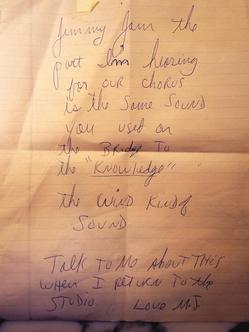 Jimmy Jam the
part I'm hearing
for our chorus
is the same sound
you used on
the Bridge to
the "Knowledge"
the wind kind of
sound
Talk to me about this
when I return to the
studio Love MJ